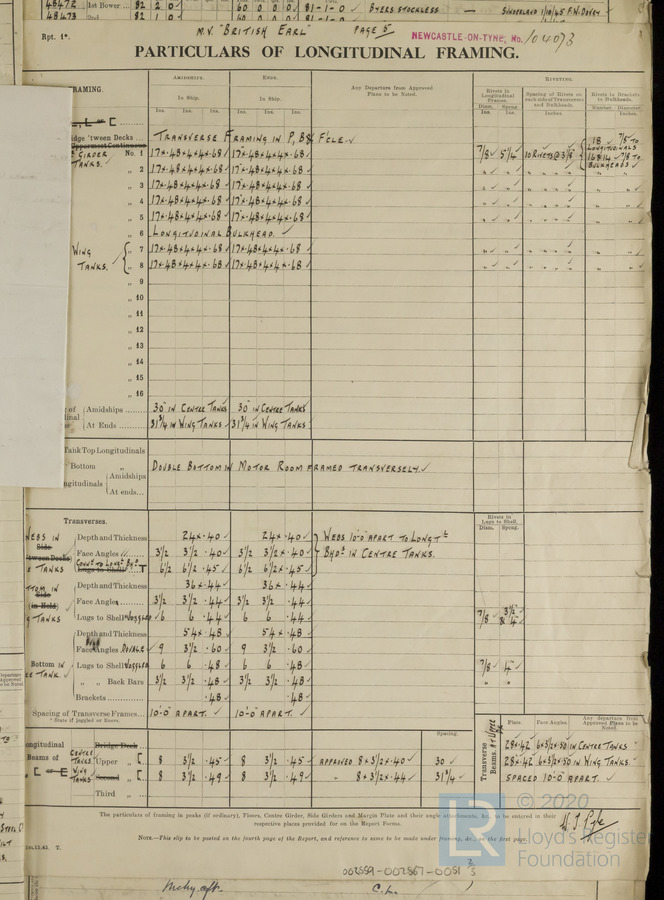 48472 1st Bower 82 2 0 60 0 0 0 81-1-0 BYERS STOCKLESS — SUNDERLAND
48473 2nd 82 1 0 60 0 0 0 81-1-0
Rpt. 1*. M.V. "BRITISH EARL" PAGE 5 NEWCASTLE-ON-TYNE, No. 104073
PARTICULARS OF LONGITUDINAL FRAMING.
FRAMING. AMIDSHIPS. ENDS. Any Departure from Approved Plans to be Noted. RIVETING.
In Ship. In Ship. Rivets in Longitudinal Frames. Spacing of Rivets on each side of Transverses and Bulkheads. Rivets in Brackets to Bulkheads.
Ins. Ins. Ins. Ins. Ins. Ins. Diam. Spcng. Number. Diameter.
Ins. Ins. Inches. Inches.
Bridge 'tween Decks TRANSVERSE FRAMING IN P, B & F'CLE.
Uppermost Continuous
GIRDER No. 1 17×.48×4×4×.68 17×.48×4×4×.68 7/8 5 1/4 10 RIVETS @ 3 1/8 18 7/8 TO LONGITUDINALS
TANKS. 16 & 14 7/8 TO BULKHEADS
„ 2 17×.48×4×4×.68 17×.48×4×4×.68 „ „ „ „ „
„ 3 17×.48×4×4×.68 17×.48×4×4×.68 „ „ „ „ „
„ 4 17×.48×4×4×.68 17×.48×4×4×.68 „ „ „ „ „
„ 5 17×.48×4×4×.68 17×.48×4×4×.68 „ „ „ „ „
„ 6 LONGITUDINAL BULKHEAD.
WING „ 7 17×.48×4×4×.68 17×.48×4×4×.68 „ „ „ „ „
TANKS. „ 8 17×.48×4×4×.68 17×.48×4×4×.68 „ „ „ „ „
„ 9
„ 10
„ 11
„ 12
„ 13
„ 14
„ 15
„ 16
Amidships 30" IN CENTRE TANKS 30" IN CENTRE TANKS
At Ends 31 3/4 IN WING TANKS 31 3/4 IN WING TANKS
Tank Top Longitudinals
Bottom „ Amidships DOUBLE BOTTOM IN MOTOR ROOM FRAMED TRANSVERSELY.
At ends
Transverses. Rivets in Lugs to Shell.
Diam. Spcng.
WEBS IN Depth and Thickness 24×.40 24×.40 WEBS 10'-0" APART TO LONGTL
Side Face Angles 3 1/2 3 1/2 .40 3 1/2 3 1/2×.40 BHDS IN CENTRE TANKS.
TANKS CONNN TO LONGL BHD T Lugs to Shell 6 1/2 6 1/2 .45 6 1/2 6 1/2×.45
Depth and Thickness 36×.44 36×.44
Side Face Angles 3 1/2 3 1/2 .44 3 1/2 3 1/2 .44
(in Hold) Lugs to Shell JOGGLED 6 6 .44 6 6 .44 7/8 3 1/2 & 4
Depth and Thickness 54×.48 54×.48
Face Angles DOUBLE 9 3 1/2 .60 9 3 1/2 .60
Bottom in Lugs to Shell JOGGLED 6 6 .48 6 6 .48 7/8 4
„ „ Back Bars 3 1/2 3 1/2 .48 3 1/2 3 1/2 .48 „ „
Brackets .48 .48
Spacing of Transverse Frames 10'-0" APART. 10'-0" APART.
* State if joggled or liners.
Spacing. Transverse Beams. AT UPPER DK Plate Face Angles Any departure from Approved Plans to be Noted.
Longitudinal Beams of Bridge Deck
CENTRE TANKS Upper „ [ 8 3 1/2 .45 8 3 1/2 .45 APPROVED 8×3 1/2×.40 30 28×.42 6×3 1/2×.50 IN CENTRE TANKS
WING TANKS Second „ [ 8 3 1/2 .49 8 3 1/2 .49 „ 8×3 1/2×.44 31 3/4 28×.42 6×3 1/2×.50 IN WING TANKS.
Third „ SPACED 10'-0" APART.
The particulars of framing in peaks (if ordinary), Floors, Centre Girder, Side Girders and Margin Plate and their angle attachments, &c., to be entered in their
respective places provided for on the Report Forms.
NOTE.—This slip to be posted on the fourth page of the Report, and reference to same to be made under framing, &c., on the first page.
LR © 2020
Lloyd's Register
Foundation
002559-002567-0051 3/3